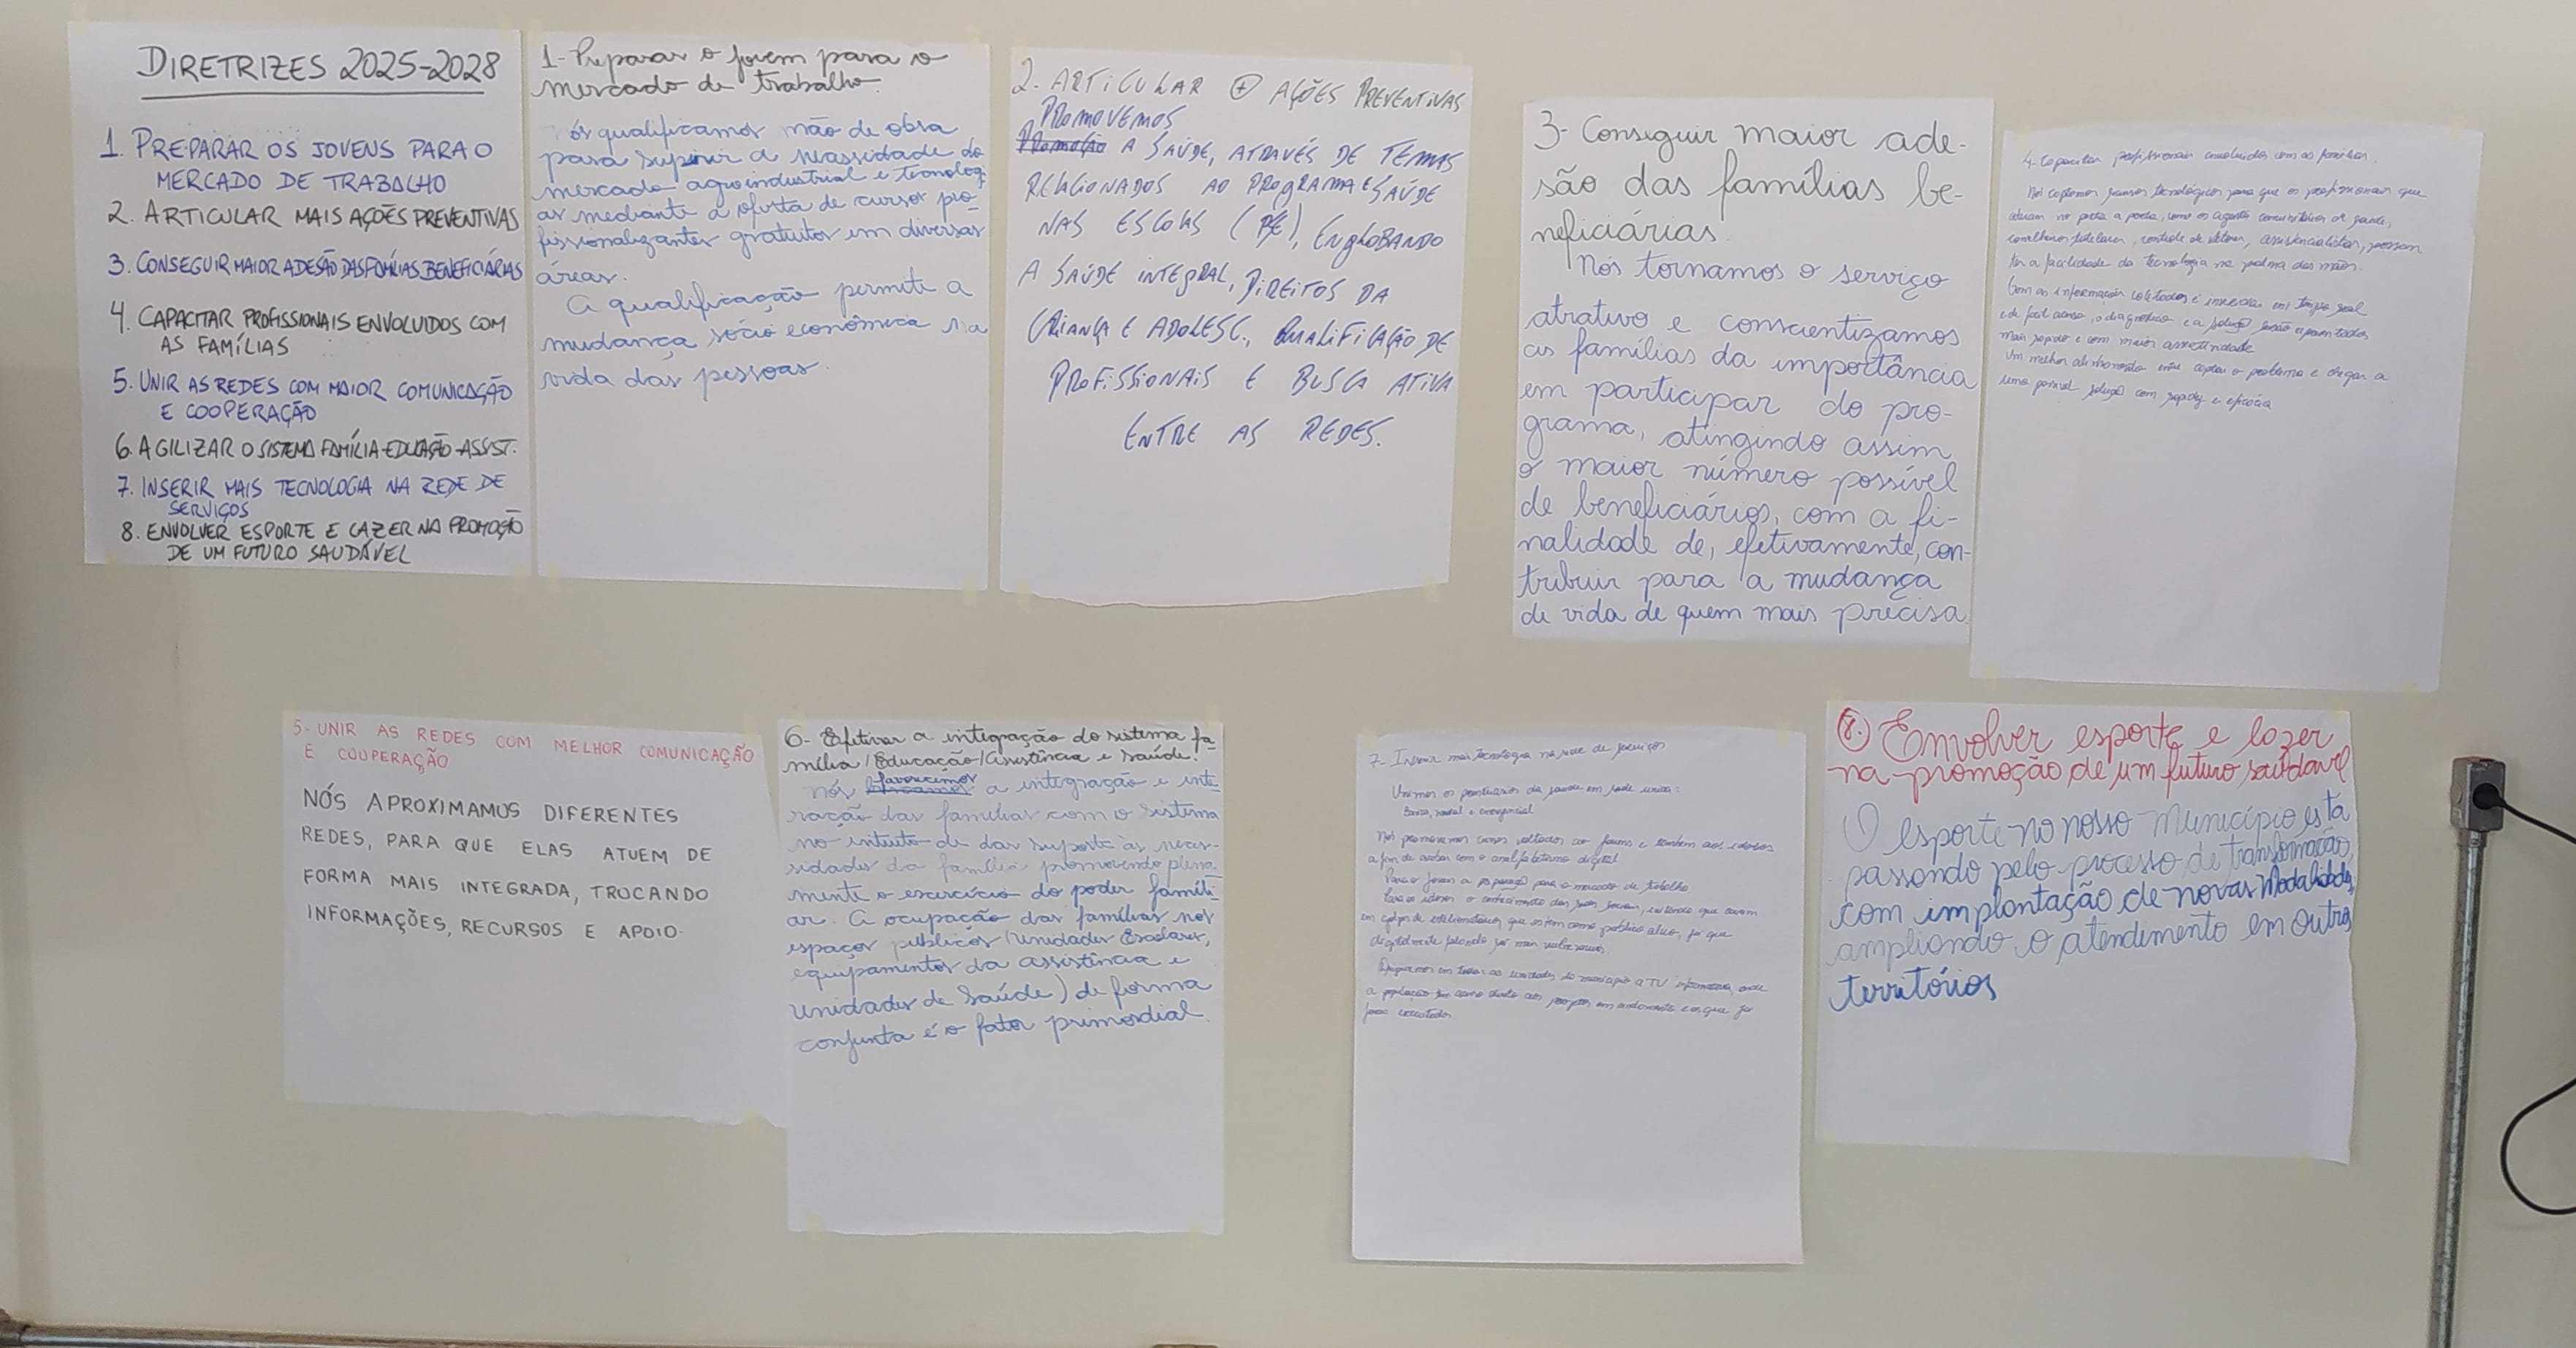 DIRETRIZES 2025-2028
1. PREPARAR OS JOVENS PARA O
MERCADO DE TRABALHO
2. ARTICULAR MAIS AÇÕES PREVENTIVAS
3. CONSEGUIR MAIOR ADESÃO DAS FAMÍLIAS BENEFICIÁRIAS
4. CAPACITAR PROFISSIONAIS ENVOLVIDOS COM
AS FAMÍLIAS
5. UNIR AS REDES COM MAIOR COMUNICAÇÃO
E COOPERAÇÃO
6. AGILIZAR O SISTEMA FAMÍLIA-EDUCAÇÃO-ASSIST.
7. INSERIR MAIS TECNOLOGIA NA REDE DE
SERVIÇOS
8. ENVOLVER ESPORTE E LAZER NA PROMOÇÃO
DE UM FUTURO SAUDÁVEL
1- Preparar o jovem para o
mercado de trabalho.
ós qualificamos mão de obra
para suprir a necessidade do
mercado agroindustrial e
as mediante a oferta de cursos pro-
fissionalizantes gratuitos em diversas
áreas.
A qualificação permite a
mudança sócio econômica na
vida das pessoas.
2. ARTICULAR + AÇÕES PREVENTIVAS
PROMOVEMOS
A SAÚDE, ATRAVÉS DE TEMAS
RELACIONADOS AO PROGRAMA SAÚDE
NAS ESCOLAS (PSE), ENGLOBANDO
A SAÚDE INTEGRAL, DIREITOS DA
CRIANÇA E ADOLESC., QUALIFICAÇÃO DE
PROFISSIONAIS E BUSCA ATIVA
ENTRE AS REDES.
3- Conseguir maior ade-
são das famílias be-
neficiárias.
Nós tornamos o serviço
atrativo e conscientizamos
as famílias da importância
em participar do pro-
grama, atingindo assim
o maior número possível
de beneficiários, com a fi-
nalidade de, efetivamente, con-
tribuir para a mudança
de vida de quem mais precisa.
4- Capacitar profissionais envolvidos com as famílias.
Nós captamos recursos tecnológicos para que os profissionais que
atuam no porta a porta, como os agentes comunitários de saúde,
conselheiros tutelares, controle de vetores, assistencialistas, possam
ter a facilidade da tecnologia na palma das mãos.
Com as informações coletadas e inseridas em tempo real
e de fácil acesso, o diagnóstico e a solução serão
mais rápido e com maior assertividade
Um melhor alinhamento entre captar o problema e chegar a
uma possível solução com rapidez e eficácia
5- UNIR AS REDES COM MELHOR COMUNICAÇÃO
E COOPERAÇÃO
NÓS APROXIMAMOS DIFERENTES
REDES, PARA QUE ELAS ATUEM DE
FORMA MAIS INTEGRADA, TROCANDO
INFORMAÇÕES, RECURSOS E APOIO.
6- Efetivar a integração do sistema fa-
mília/Educação/Assistência e saúde.
favorecemos
Nós a integração e inte-
ração das famílias com o sistema
no intuito de dar suporte às neces-
sidades da família promovendo plena
mente o exercício do poder famili-
ar. A ocupação das famílias nos
espaços públicos (Unidades Escolares,
equipamentos da assistência e
Unidades de Saúde) de forma
conjunta é o fator primordial.
7- Inserir mais tecnologia na rede de serviços
Unimos os prontuários da saúde em rede única:
Básica, e emergencial
Nós promovemos cursos voltados ao jovens e também aos idosos
a fim de acabar com o analfabetismo digital
Para o jovem a preparação para o mercado de trabalho
Para os idosos o conhecimento das redes sociais, evitando que caiam
em golpes de estelionatários que os tem como público alvo, por que
digitalmente falando são mais vulneráveis.
em todas as unidades do município a TV informativa, onde
a população tem acesso direto aos projetos em andamento e os que já
foram executados.
8. Envolver esporte e lazer
na promoção de um futuro saúdavel
O esporte no nosso Município está
passando pelo processo de transformação,
com implantação de novas modalidades,
ampliando o atendimento em outros
territórios